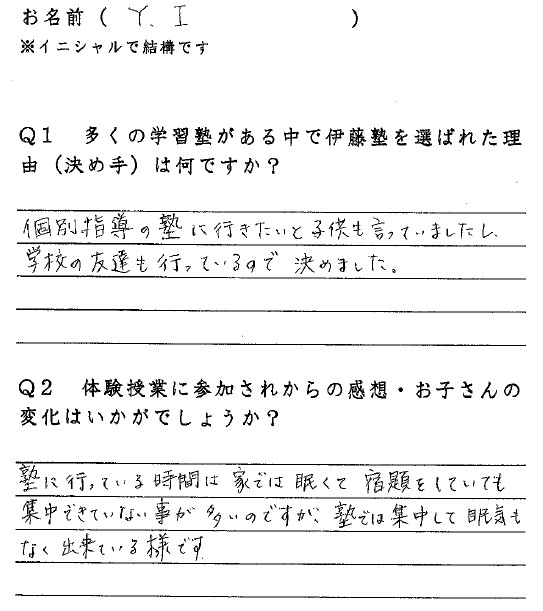 お名前（ Y. I ）
※イニシャルで結構です
Q1 多くの学習塾がある中で伊藤塾を選ばれた理
由（決め手）は何ですか？
個別指導の塾に行きたいと子供も言っていましたし、
学校の友達も行っているので 決めました。
Q2 体験授業に参加されからの感想・お子さんの
変化はいかがでしょうか？
塾に行っている時間は 家では 眠くて 宿題をしていても
集中できていない事が 多いのですが、塾では集中して 眠気も
なく 出来ている様です